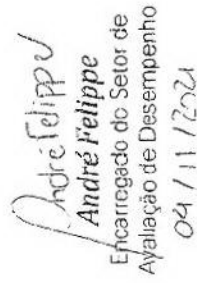 André Felippe
André Felippe
Encarregado do Setor de
Avaliação de Desempenho
04/11/2021